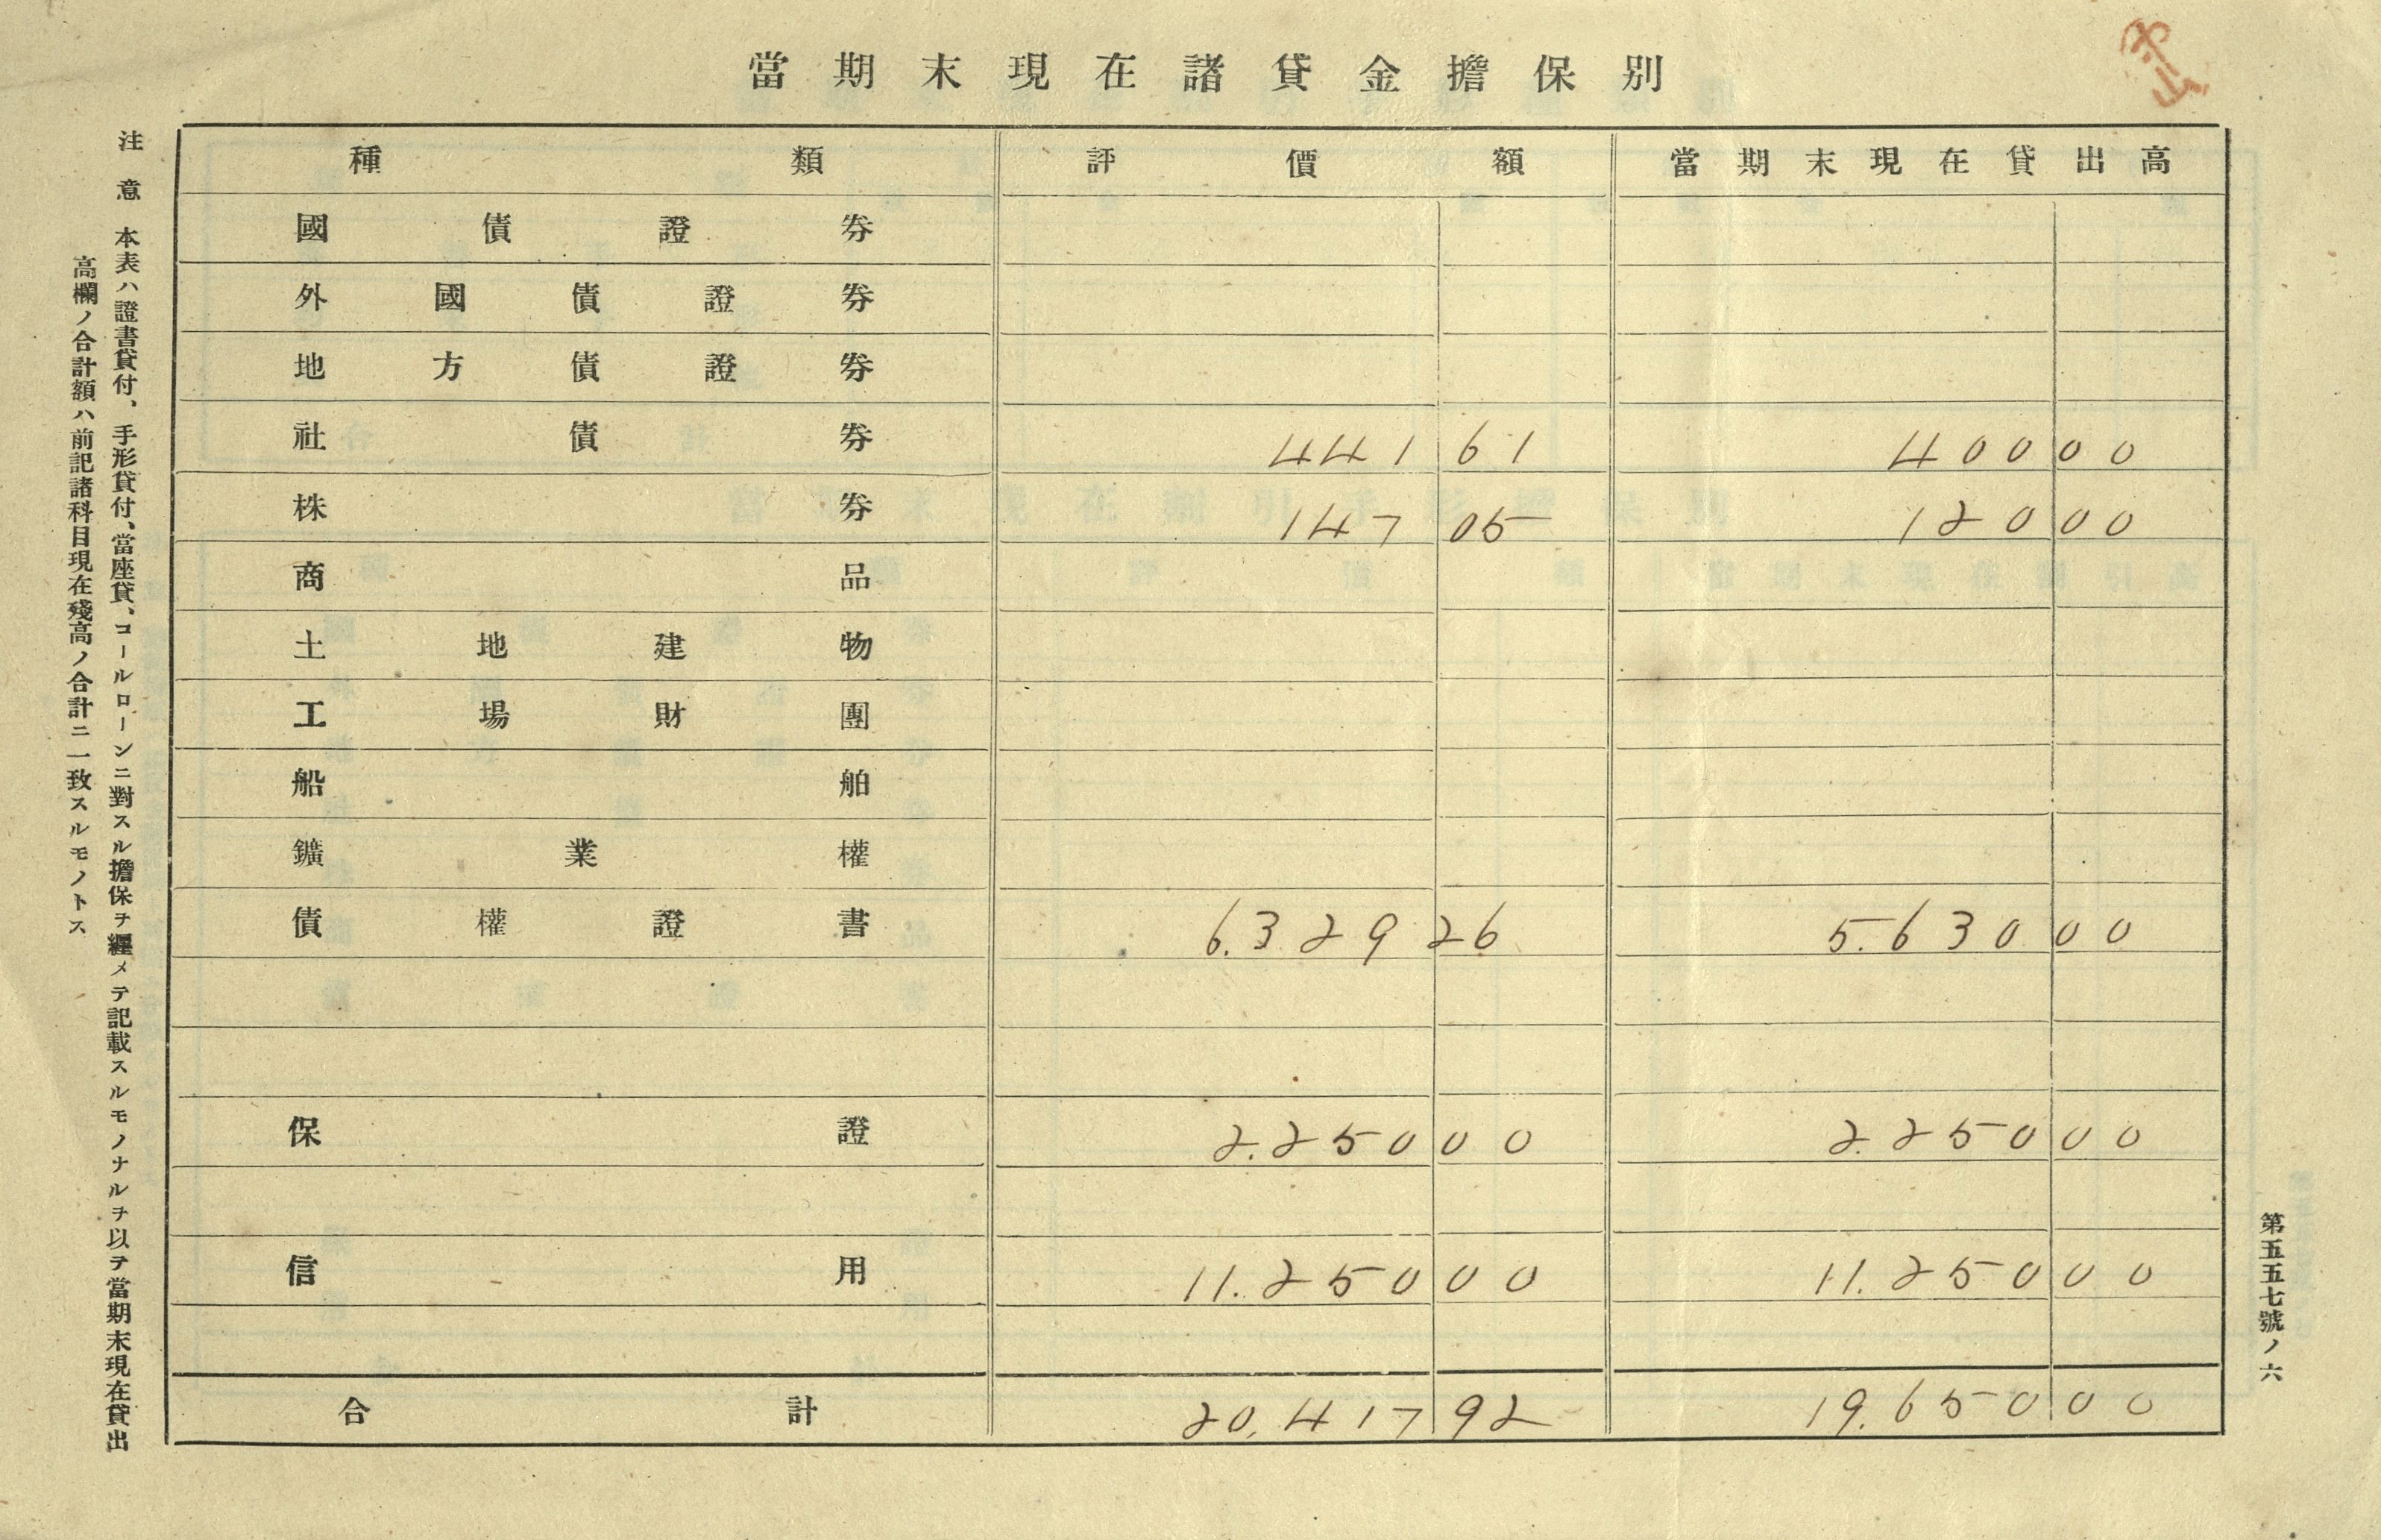 當期末現在諸貸金擔保別
種類 評價額 當期末現在貸出高
國債證券
外國債證券
地方債證券
社債券 441 61 400 00
株券 147 05 120 00
商品
土地建物
工場財團
船舶
鑛業權
債權證書 6.329 26 5.630 00
保證 2.250 00 2.250 00
信用 11.250 00 11.250 00
合計 20,417 92 19.650 00
注意 本表ハ證書貸付、手形貸付、當座貸、コールローンニ對スル擔保ヲ纒メテ記載スルモノナルヲ以テ當期末現在貸出
高欄ノ合計額ハ前記諸科目現在殘高ノ合計ニ一致スルモノトス
第五五七號ノ六